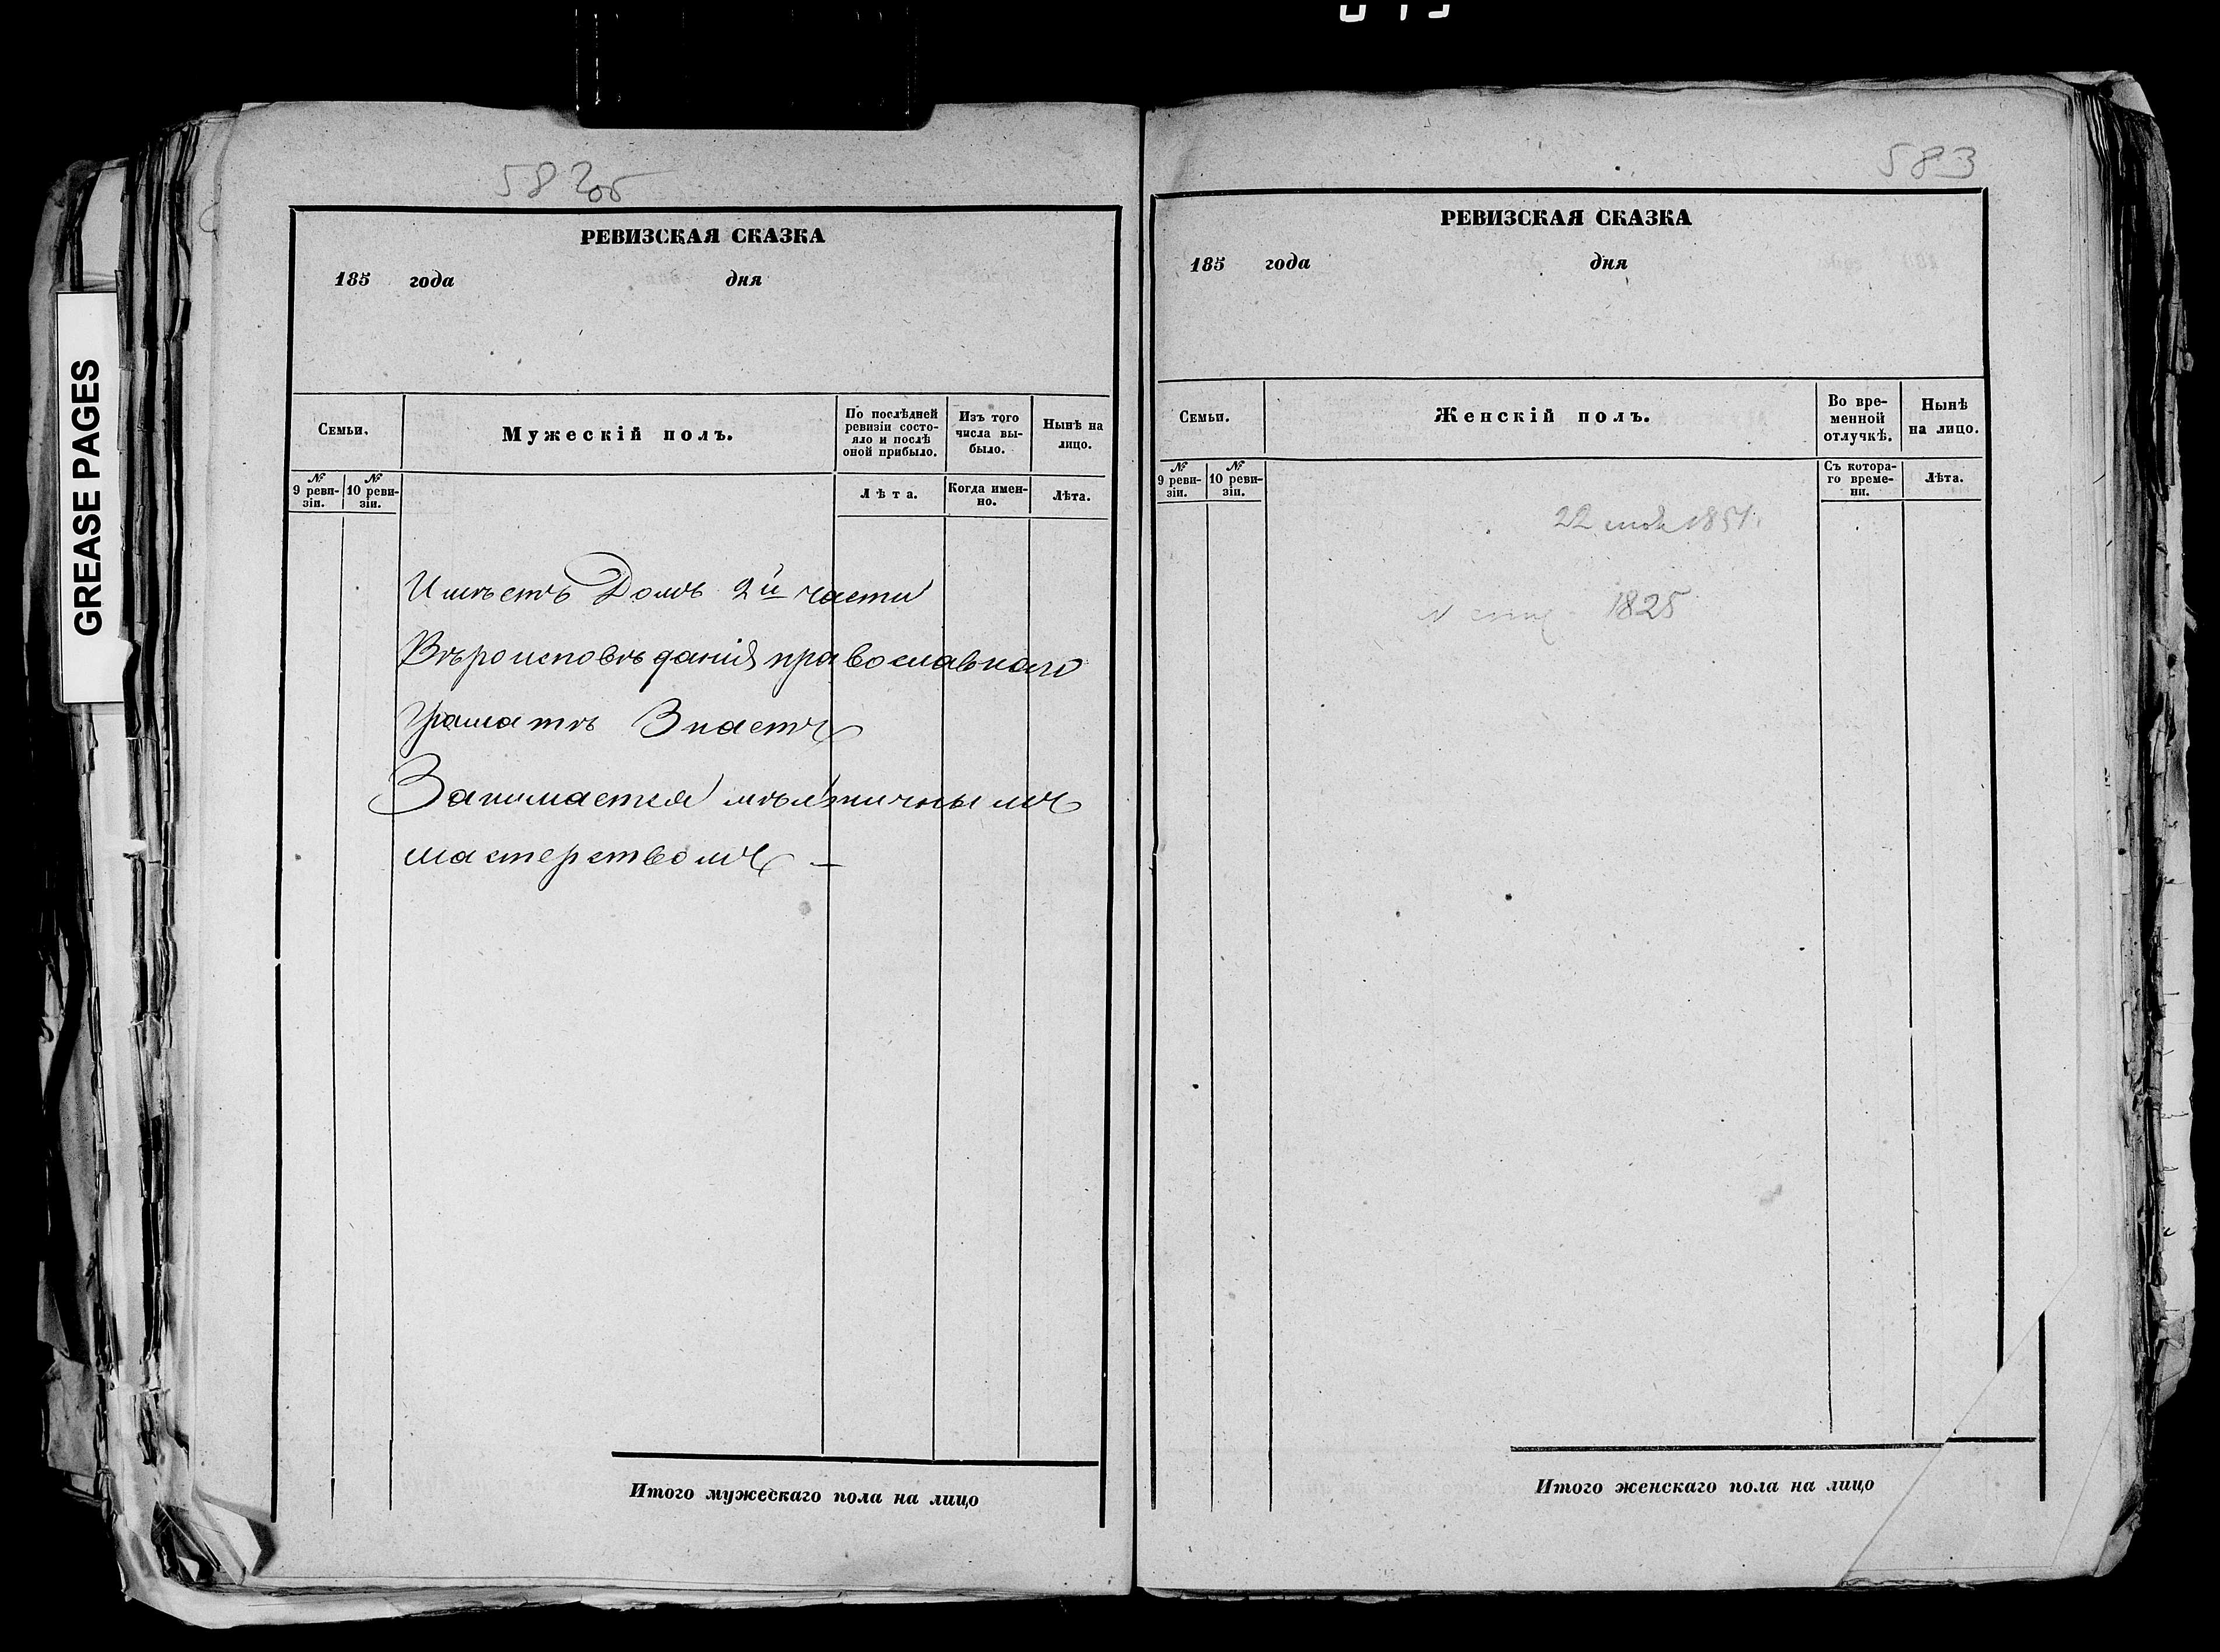 GREASE PAGES
582об
РЕВИЗСКАЯ СКАЗКА
185 года дня
Семьи.
Мужескій полъ.
По послѣдней ревизіи состояло и послѣ оной прибыло.
Изъ того числа выбыло.
Нынѣ на лицо.
№ 9 ревизіи.
№ 10 ревизіи.
Лѣта.
Когда именно.
Лѣта.
Имѣетъ Домъ 2й части
Вѣроисповѣданія православнаго
Граматѣ Знаетъ
Занимается мѣлничнымъ
мастерствомъ –
Итого мужескаго пола на лицо
583
РЕВИЗСКАЯ СКАЗКА
185 года дня
Семьи.
Женскій полъ.
Во временной отлучкѣ.
Нынѣ на лицо.
№ 9 ревизіи.
№ 10 ревизіи.
Съ котораго времени.
Лѣта.
22
1825
Итого женскаго пола на лицо